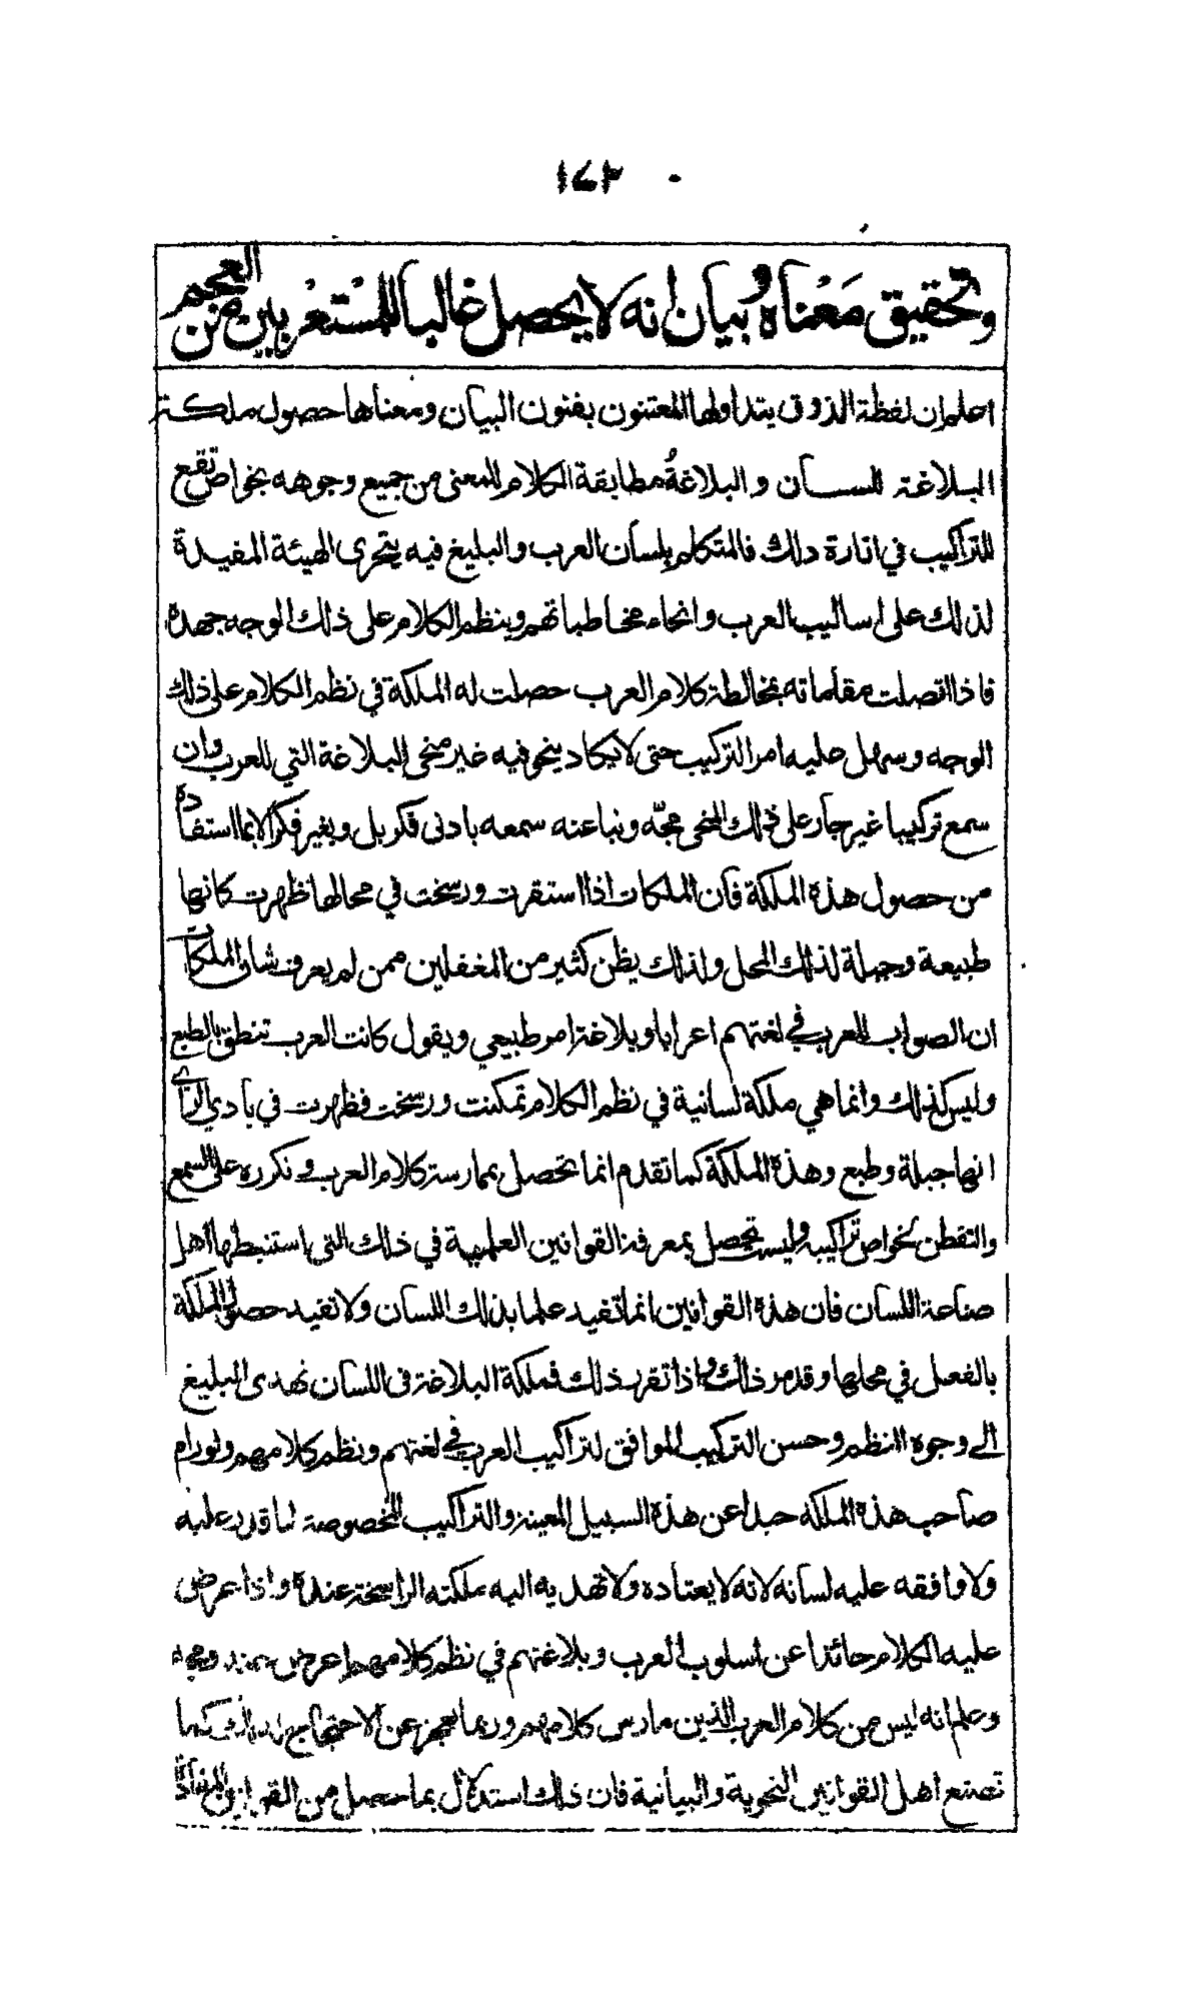 ١٤٣
وتحقيق مَعْناهُ وبيان انه لا يحصل غالباً للمُسْتعْربين من العجم
اعلم ان لفظة الذوق يتداولها المعتنون بفنون البيان ومعناها حصول ملكة
البلاغة للسان والبلاغةُ مطابقة الكلام للمعنى من جميع وجوهه بخواص تقع
للتراكيب في افادة ذلك فالمتكلم بلسان العرب والبليغ فيه يتحرى الهيئة المفيدة
لذلك على اساليب العرب وانحاء مخاطباتهم وينظم الكلام على ذلك الوجه جهده
فاذا اتصلت مقاماته بمخالطة كلام العرب حصلت له الملكة في نظم الكلام على ذلك
الوجه وسهل عليه امر التركيب حتى لا يكاد ينحو فيه غير منحى البلاغة التي للعرب وان
سمع تركيبا غير جار على ذلك المنحى مجّه ونبا عنه سمعه بادنى فكر بل وبغير فكر الا بما استفاده
من حصول هذه الملكة فان الملكات اذا استقرت ورسخت في محالها ظهرت كانها
طبيعة وجبلة لذلك المحل ولذلك يظن كثير من المغفلين ممن لم يعرف شان الملكات
ان الصواب للعرب في لغتهم اعرابا وبلاغة امر طبيعي ويقول كانت العرب تنطق بالطبع
وليس كذلك وانما هي ملكة لسانية في نظم الكلام تمكنت ورسخت فظهرت في بادي الراي
انها جبلة وطبع وهذه الملكة كما تقدم انما تحصل بممارسة كلام العرب وتكرره على السمع
والتفطن لخواص تراكيبه وليست تحصل بمعرفة القوانين العلمية في ذلك التي استنبطها اهل
صناعة اللسان فان هذه القوانين انما تفيد علما بذلك اللسان ولا تفيد حصول الملكة
بالفعل في محلها وقد مر ذلك واذا تقرر ذلك فملكة البلاغة في اللسان تهدى البليغ
الى وجوه النظم وحسن التركيب الموافق لتراكيب العرب في لغتهم ونظم كلامهم ولو رام
صاحب هذه الملكة حيدا عن هذه السبيل المعينة والتراكيب المخصوصة لما قدر عليه
ولا وافقه عليه لسانه لانه لا يعتاده ولا تهديه اليه ملكته الراسخة عنده واذا عرض
عليه الكلام حائدا عن اسلوب العرب وبلاغتهم في نظم كلامهم اعرض عنه ومجه
وعلم انه ليس من كلام العرب الذين مارس كلامهم وربما يعجز عن الاحتجاج لذلك كما
تصنع اهل القوانين النحوية والبيانية فان ذلك استدلال بما حصل من القوانين المفادة